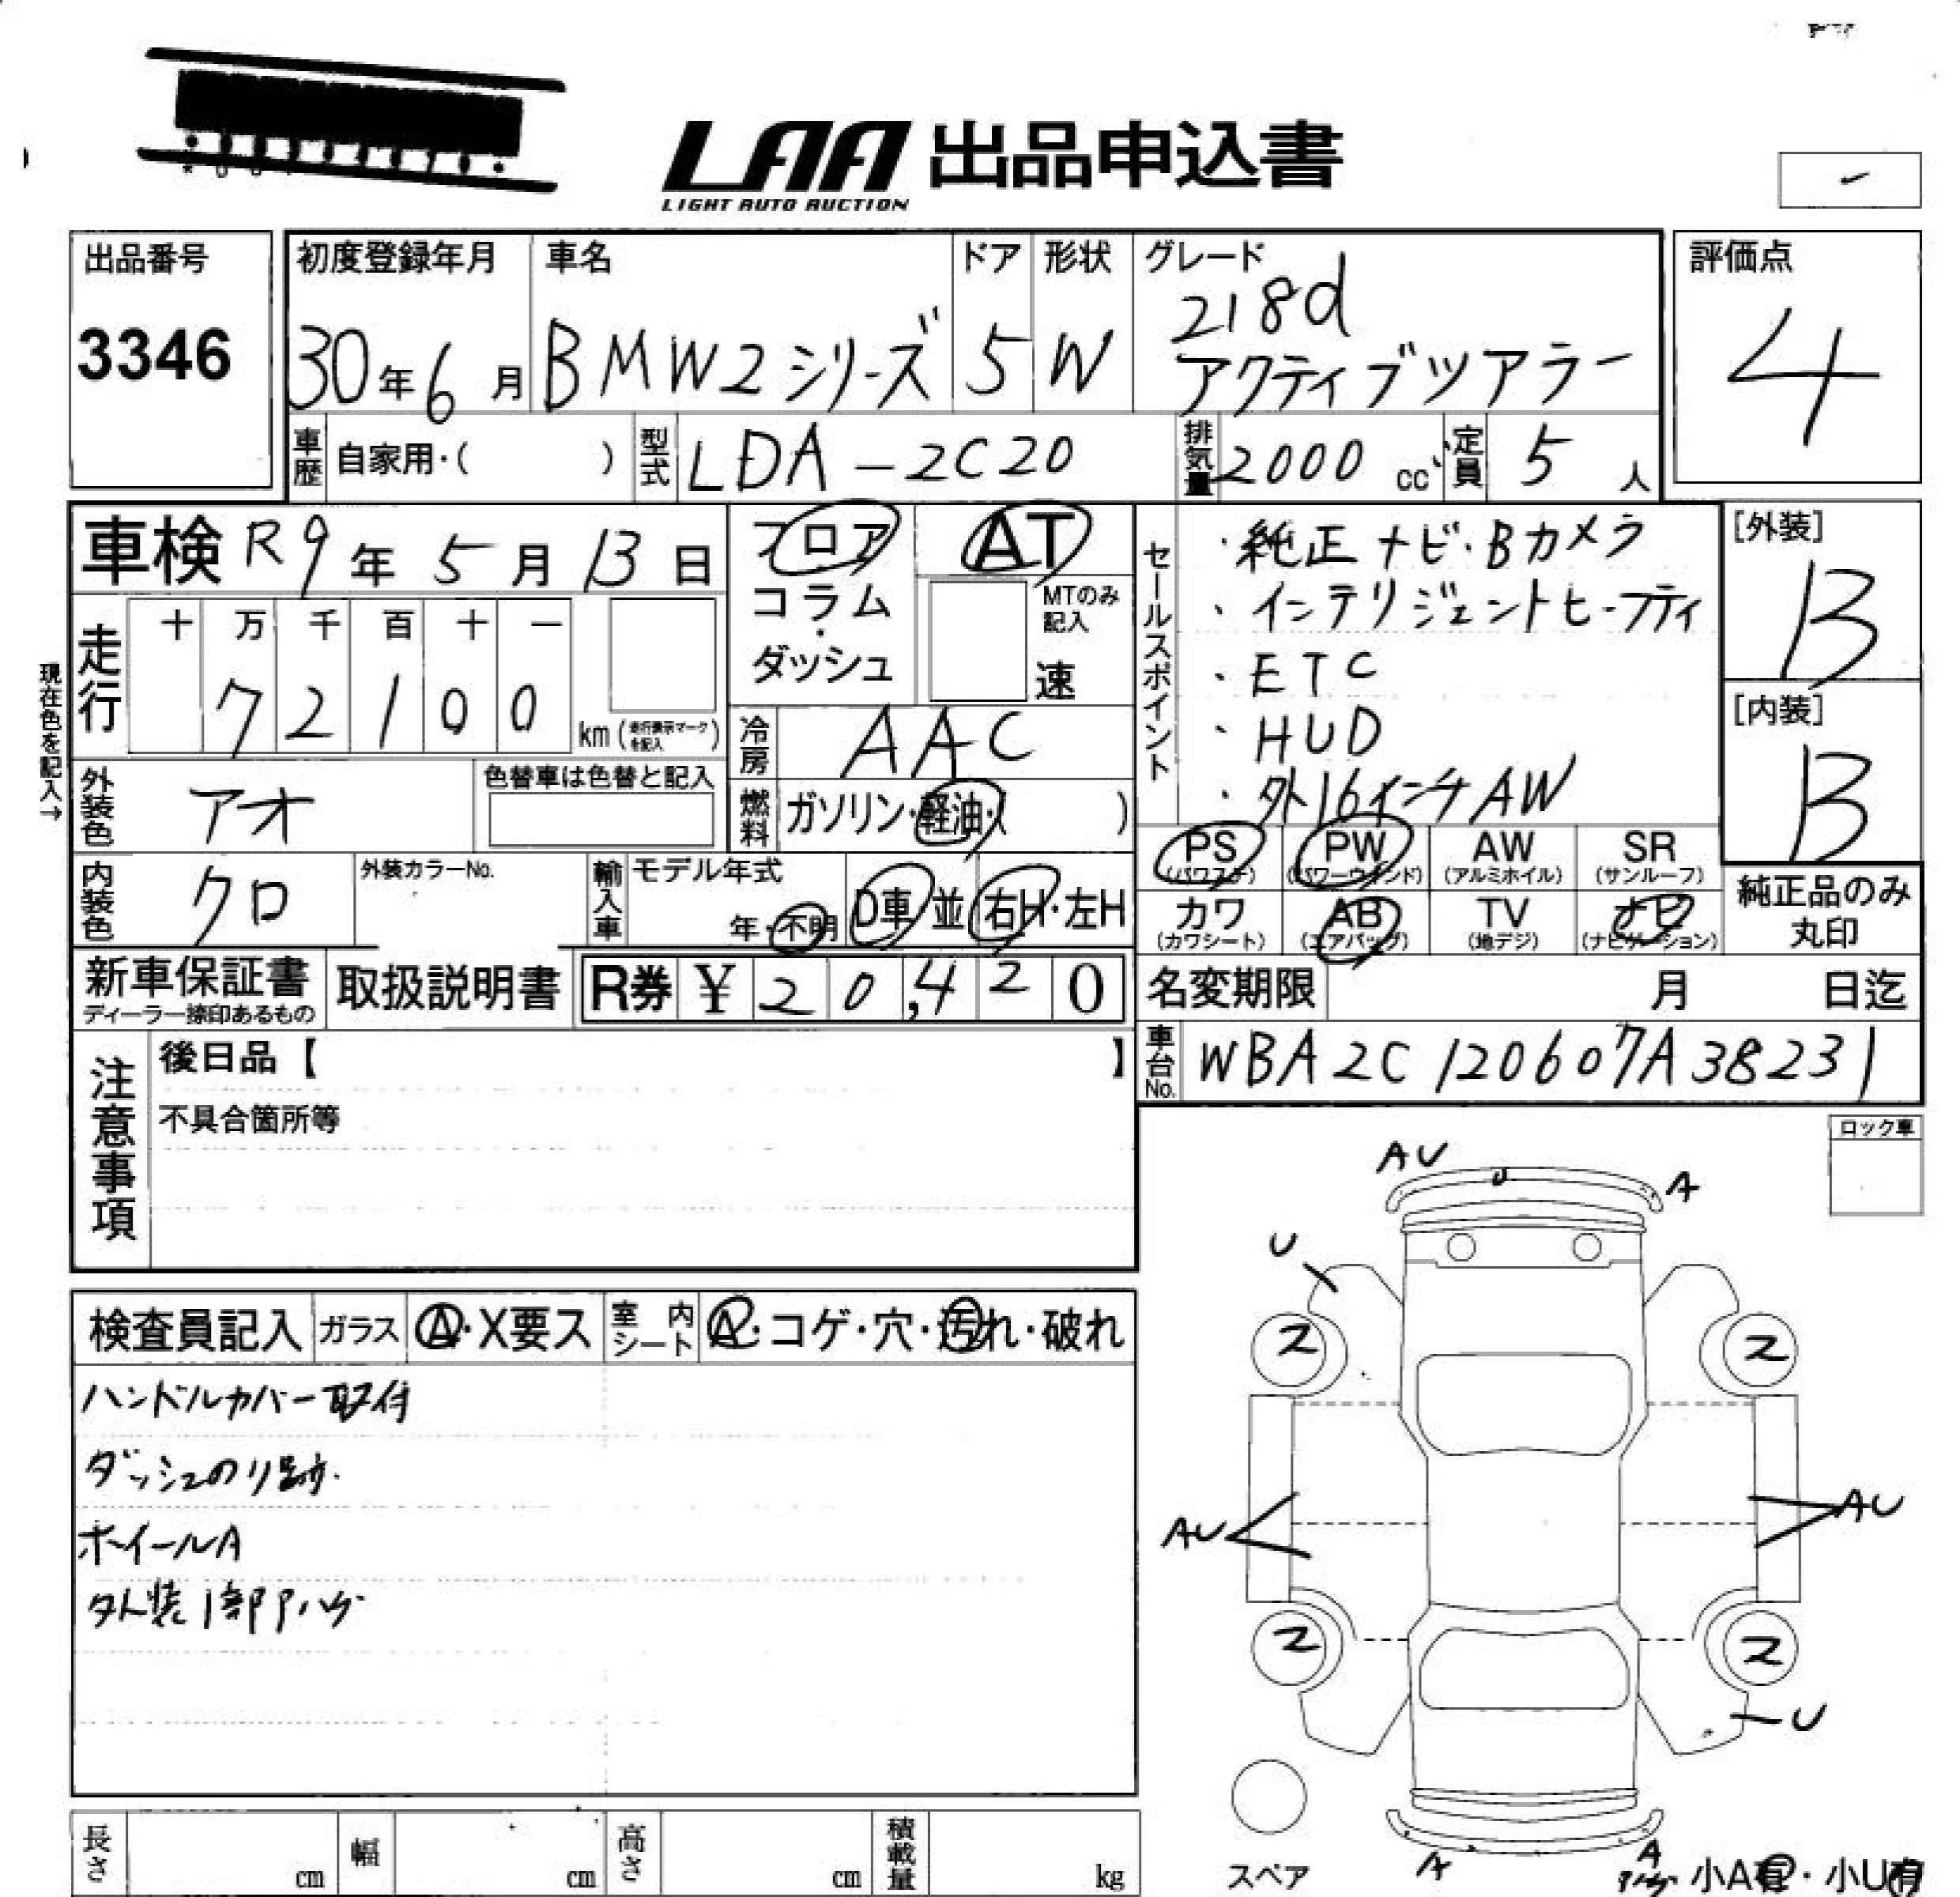 LAA 出品申込書
LIGHT AUTO AUCTION
出品番号
3346
初度登録年月
30年6月
車名
BMW2シリーズ
ドア
5
形状
W
グレード
218d
アクティブツアラー
評価点
4
車歴 自家用・( )
型式 LDA-2C20
排気量 2000 cc
定員 5 人
車検 R9年 5月 13日
フロア
コラム
・
ダッシュ
AT
MTのみ
記入
速
走行
十 万 千 百 十 一
7 2 1 0 0
km(走行表示マークを記入)
現在色を記入→
冷房 AAC
外装色 アオ
色替車は色替と記入
燃料 ガソリン・軽油・( )
内装色 クロ
外装カラーNo.
輸入車 モデル年式
年・不明
D車・並
右H・左H
セールスポイント
・純正ナビ・Bカメラ
・インテリジェントセーフティ
・ETC
・HUD
・外16インチAW
[外装]
B
[内装]
B
PS
(パワステ)
PW
(パワーウインド)
AW
(アルミホイル)
SR
(サンルーフ)
カワ
(カワシート)
AB
(エアバッグ)
TV
(地デジ)
ナビ
(ナビゲーション)
純正品のみ
丸印
新車保証書
ディーラー捺印あるもの
取扱説明書
R券 ¥ 20,420
名変期限 月 日迄
車台No. WBA2C120607A38231
注意事項
後日品【 】
不具合箇所等
ロック車
検査員記入
ガラス A・X要ス
室内シート A・コゲ・穴・汚れ・破れ
ハンドルカバー取付
ダッシュのり跡.
ホイールA
外装1部P,ハゲ
AU
U
A
U
2
2
AU
AU
2
2
U
スペア
A
A
小A有・小U有
長さ cm
幅 cm
高さ cm
積載量 kg